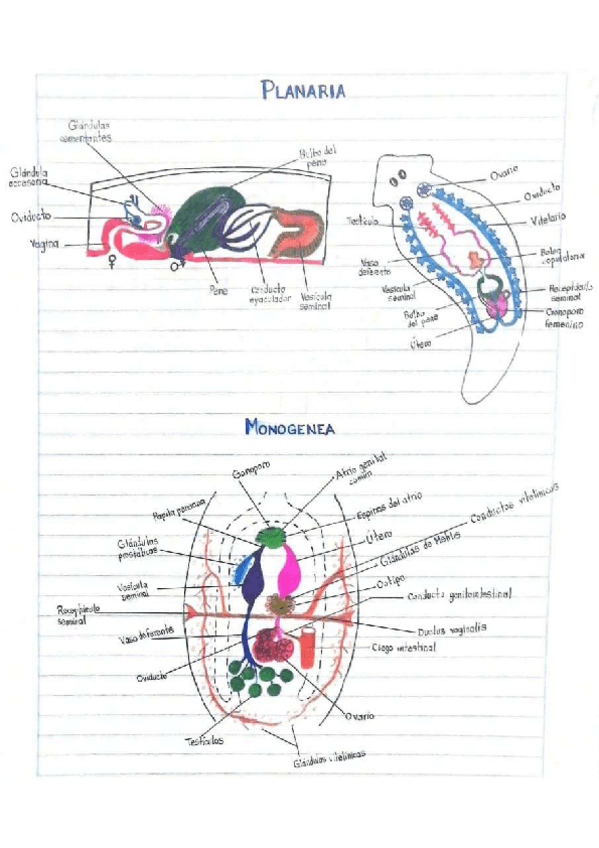 PLANARIA
Glándulas
cementantes
Glándula
accesoria
Oviducto
Vagina
♀
♂
Bulbo del
pene
Pene
Conducto
eyaculador
Vesícula
seminal
Ovario
Oviducto
Vitelario
Testículo
Vaso
deferente
Bolsa
copuladora
Vesícula
seminal
Receptáculo
seminal
Bulbo
del pene
Gonoporo
femenino
Útero
MONOGENEA
Gonoporo
Atrio genital
común
Papila peneana
Espinas del atrio
Conductos vitelínicos
Glándulas
prostáticas
Útero
Glándulas de Mehlis
Ootipo
Vesícula
seminal
Conducto genitointestinal
Receptáculo
seminal
Ductus vaginalis
Vaso deferente
Ciego intestinal
Oviducto
Ovario
Testículos
Glándulas vitelínicas